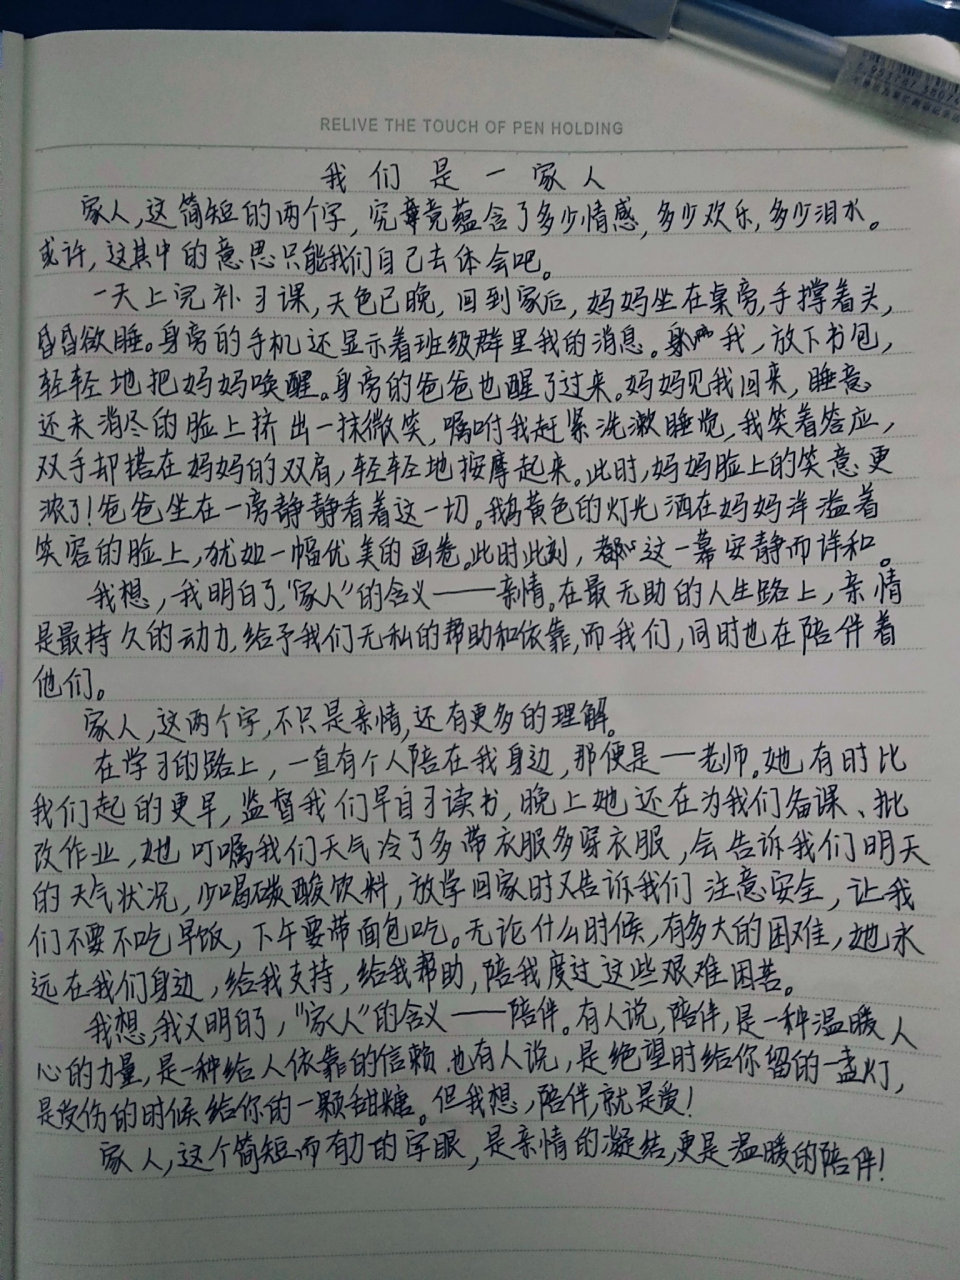 RELIVE THE TOUCH OF PEN HOLDING
我们是一家人
家人,这简短的两个字,究竟竟蕴含了多少情感,多少欢乐,多少泪水。
或许,这其中的意思只能我们自己去体会吧。
一天上完补习课,天色已晚,回到家后,妈妈坐在桌旁,手撑着头,
昏昏欲睡。身旁的手机还显示着班级群里我的消息。我,放下书包,
轻轻地把妈妈唤醒。身旁的爸爸也醒了过来。妈妈见我回来,睡意
还未消尽的脸上挤出一抹微笑,嘱咐我赶紧洗漱睡觉,我笑着答应,
双手却搭在妈妈的双肩,轻轻地按摩起来。此时,妈妈脸上的笑意更
浓了!爸爸坐在一旁静静看着这一切。鹅黄色的灯光洒在妈妈洋溢着
笑容的脸上,犹如一幅优美的画卷。此时此刻,这一幕安静而详和。
我想,我明白了,“家人”的含义——亲情。在最无助的人生路上,亲情
是最持久的动力,给予我们无私的帮助和依靠,而我们,同时也在陪伴着
他们。
家人,这两个字,不只是亲情,还有更多的理解。
在学习的路上,一直有个人陪在我身边,那便是——老师。她有时比
我们起的更早,监督我们早自习读书,晚上她还在为我们备课、批
改作业,她叮嘱我们天气冷了多带衣服多穿衣服,会告诉我们明天
的天气状况,少喝碳酸饮料,放学回家时又告诉我们注意安全,让我
们不要不吃早饭,下午要带面包吃。无论什么时候,有多大的困难,她永
远在我们身边,给我支持,给我帮助,陪我度过这些艰难困苦。
我想,我又明白了,“家人”的含义——陪伴。有人说,陪伴,是一种温暖人
心的力量,是一种给人依靠的信赖.也有人说,是绝望时给你留的一盏灯,
是受伤的时候给你的一颗甜糖。但我想,陪伴,就是爱!
家人,这个简短而有力的字眼,是亲情的凝结,更是温暖的陪伴!